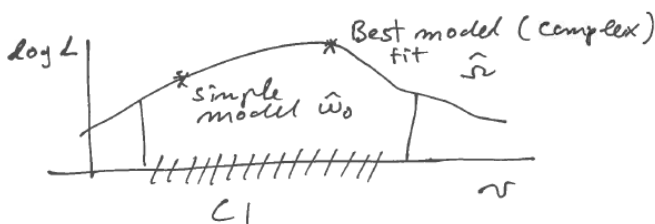 log L
Best model (complex)
fit Ω̂
simple
model ω̂₀
CI